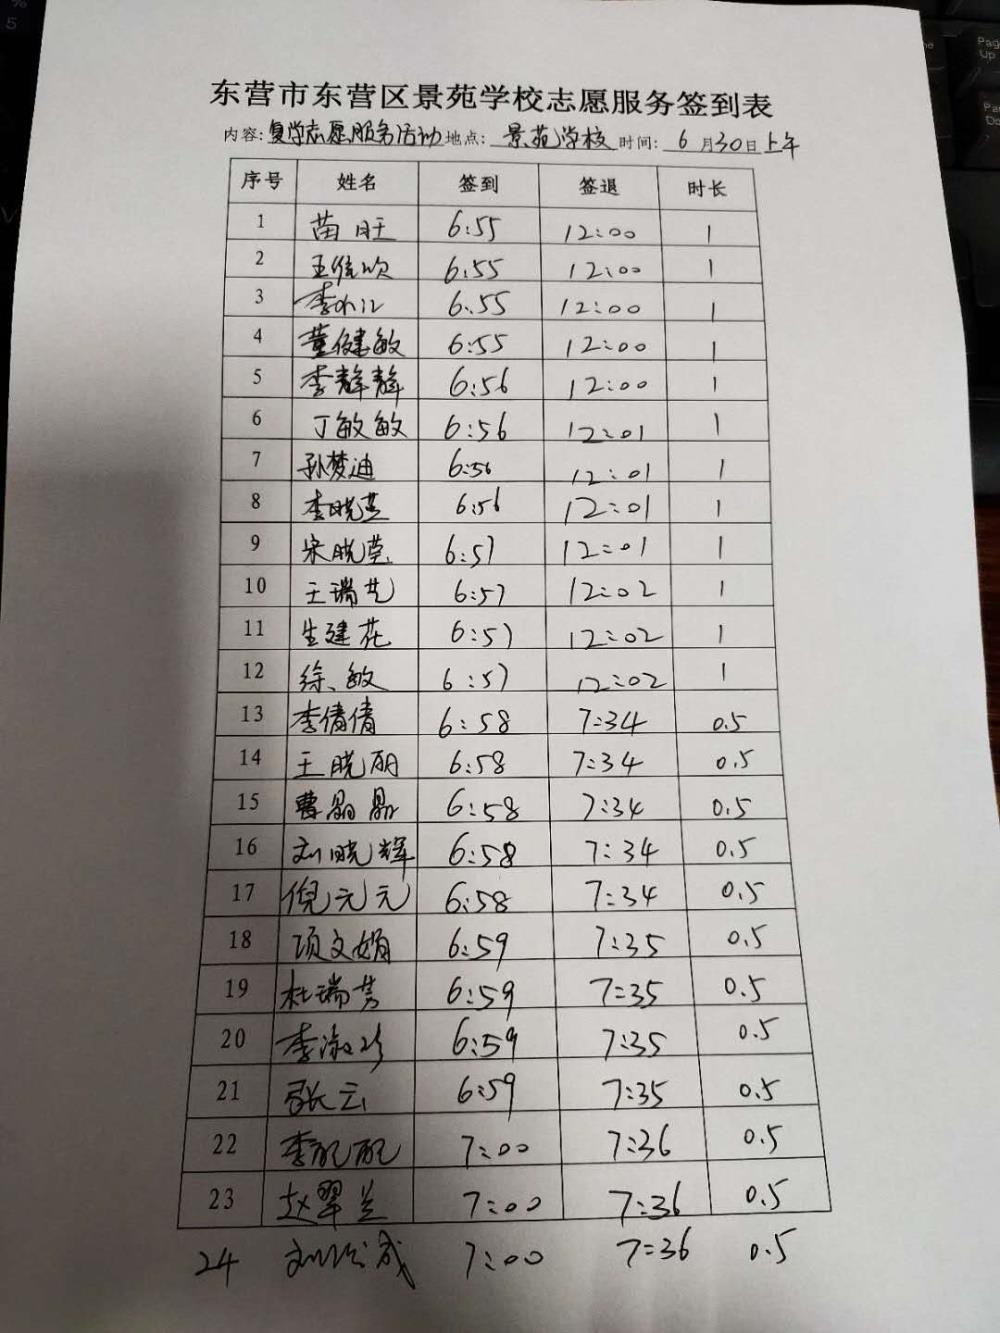 东营市东营区景苑学校志愿服务签到表
内容: 复学志愿服务活动 地点: 景苑学校 时间: 6月30日上午
序号 姓名 签到 签退 时长
1 苗旺 6:55 12:00 1
2 王 6:55 12:00 1
3 李 6:55 12:00 1
4 董健敏 6:55 12:00 1
5 李静静 6:56 12:00 1
6 丁敏敏 6:56 12:01 1
7 孙梦迪 6:56 12:01 1
8 李晓燕 6:56 12:01 1
9 宋晓莹 6:57 12:01 1
10 王瑞芝 6:57 12:02 1
11 生建花 6:57 12:02 1
12 徐敏 6:57 12:02 1
13 李倩倩 6:58 7:34 0.5
14 王晓丽 6:58 7:34 0.5
15 曹晶晶 6:58 7:34 0.5
16 刘晓辉 6:58 7:34 0.5
17 倪元元 6:58 7:34 0.5
18 项文娟 6:59 7:35 0.5
19 杜瑞芳 6:59 7:35 0.5
20 李淑珍 6:59 7:35 0.5
21 张云 6:59 7:35 0.5
22 李配配 7:00 7:36 0.5
23 赵翠兰 7:00 7:36 0.5
24 刘 成 7:00 7:36 0.5